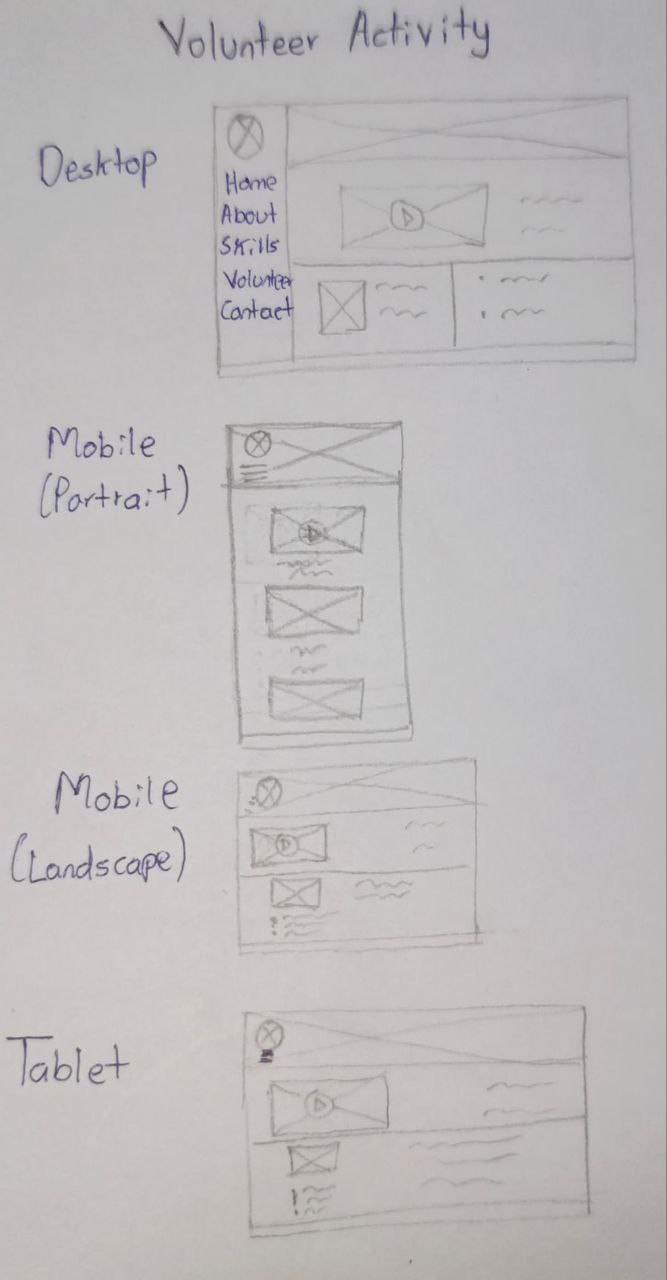 Volunteer Activity
Desktop
Home
About
Skills
Volunteer
Contact
Mobile
(Portrait)
Mobile
(Landscape)
Tablet